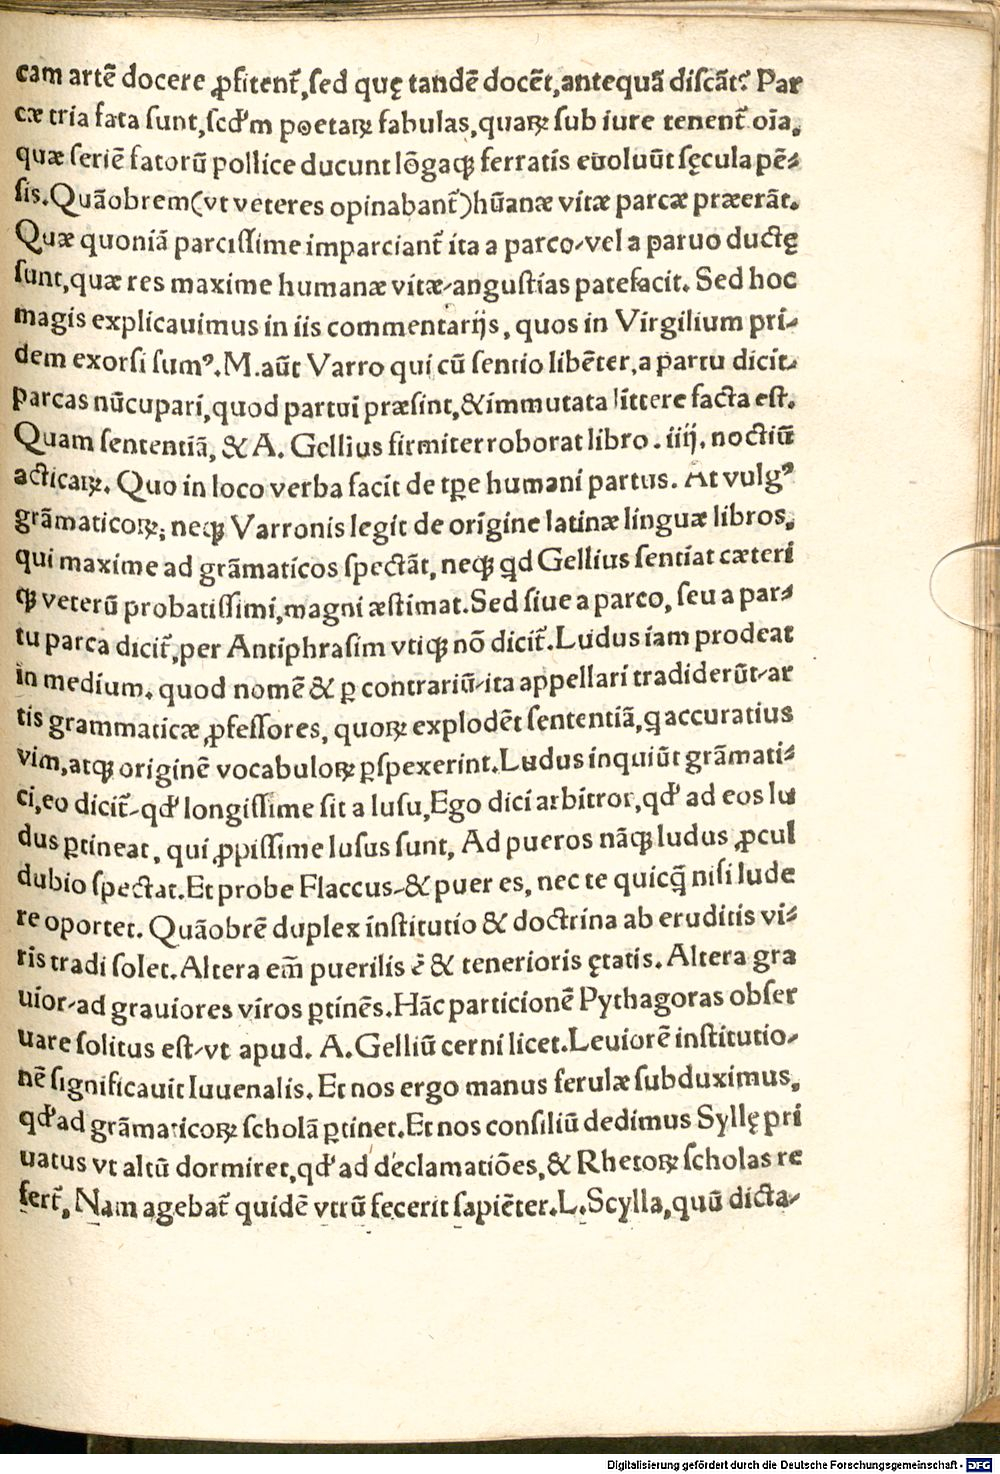 cam artē docere ꝓfitent᷑,sed quę tandē docēt,antequā discāt? Par
cæ tria fata sunt,scd'm poetaꝝ fabulas,quaꝝ sub iure tenent᷑ oīa,
quæ seriē fatorū pollice ducunt lōgaqꝫ ferratis euoluūt sęcula pē-
sis.Quāobrem(vt veteres opinabant᷑)hūanæ vitæ parcæ præerāt.
Quæ quoniā parcissime imparciant᷑ ita a parco-vel a paruo ductę
sunt,quæ res maxime humanæ vitæ-angustias patefacit. Sed hoc
magis explicauimus in iis commentarijs, quos in Virgilium pri-
dem exorsi sumꝰ.M.aūt Varro qui cū sentio libēter,a partu dicit.
parcas nūcupari,quod partui præsint,&immutata littere facta est.
Quam sententiā, & A. Gellius firmiter roborat libro . iiij. noctiū
acticaꝝ. Quo in loco verba facit de tꝑe humani partus. At vulgꝰ
grāmaticoꝝ; neqꝫ Varronis legit de origine latinæ linguæ libros,
qui maxime ad grāmaticos spectāt, neqꝫ qd Gellius sentiat cæteri
qꝫ veterū probatissimi,magni æstimat.Sed siue a parco, seu a par-
tu parca dicit᷑,per Antiphrasim vtiqꝫ nō dicit᷑.Ludus iam prodeat
in medium. quod nomē & ꝑ contrariū-ita appellari tradiderūt-ar
tis grammaticæ ꝓfessores, quoꝝ explodēt sententiā,q accuratius
vim,atqꝫ originē vocabuloꝝ ꝑspexerint.Ludus inquiūt grāmati-
ci,eo dicit᷑-qd' longissime sit a lusu,Ego dici arbitror,qd' ad eos lu
dus ꝑtineat, qui ꝓpissime lusus sunt, Ad pueros nāqꝫ ludus ꝓcul
dubio spectat.Et probe Flaccus-& puer es, nec te quicq̄ nisi lude
re oportet. Quāobrē duplex institutio & doctrina ab eruditis vi-
ris tradi solet.Altera em̄ puerilis ē & tenerioris ętatis. Altera gra
uior-ad grauiores viros ꝑtinēs.Hāc particionē Pythagoras obser
uare solitus est-vt apud. A.Gelliū cerni licet.Leuiorē institutio-
nē significauit Iuuenalis. Et nos ergo manus ferulæ subduximus,
qd'ad grāmaticoꝝ scholā ꝑtinet.Et nos consiliū dedimus Syllę pri
uatus vt altū dormiret,qd' ad declamatiōes,& Rhetoꝝ scholas re
fert᷑, Nam agebat᷑ quidē vtrū fecerit sapiēter.L.Scylla,quū dicta-
Digitalisierung gefördert durch die Deutsche Forschungsgemeinschaft - DFG